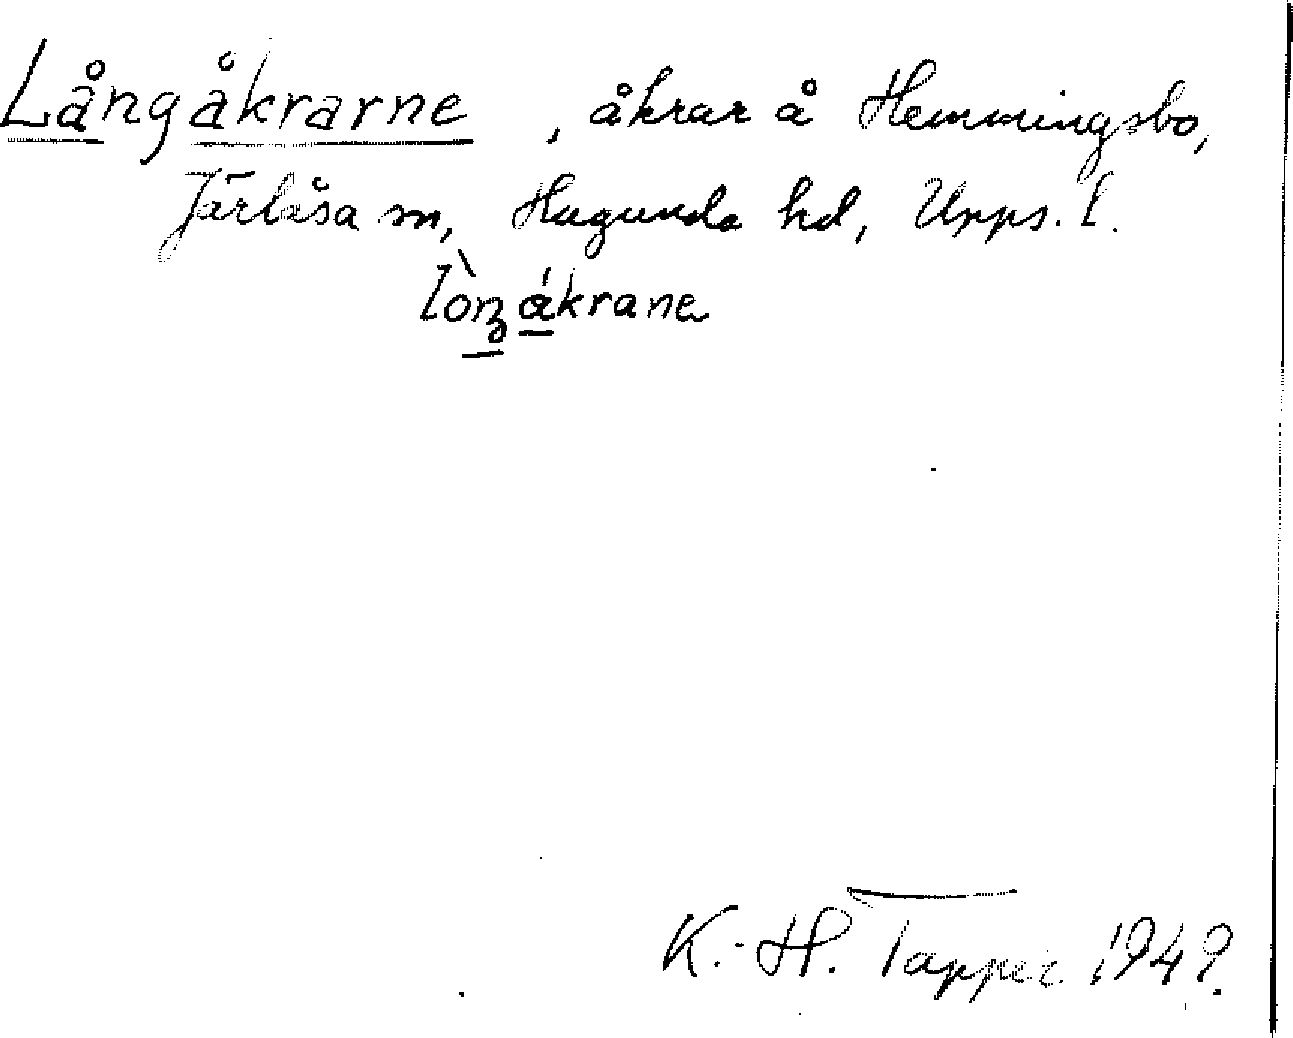 Långåkrarne, åkrar å Hemmingsbo,
Järlåsa sn, Hagunda hd, Upps. l.
lòŋákrane
K.-H. Tapper 1949.